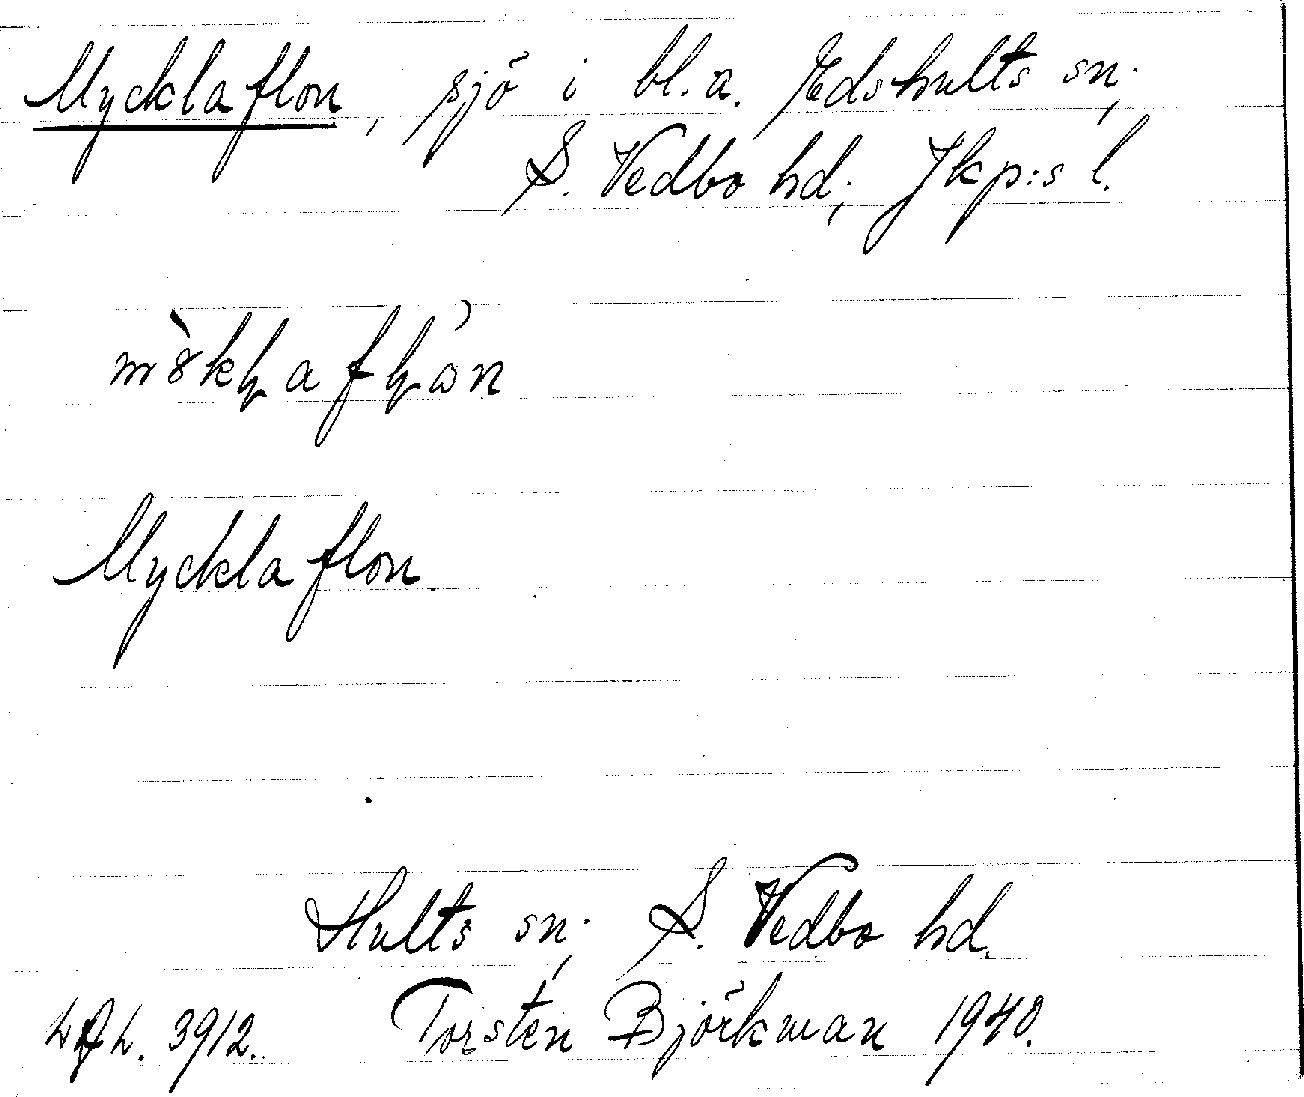 Mycklaflon, sjö i bl.a. Edshults sn,
S. Vedbo hd, Jkp:s l.
Mycklaflon
Hults sn, S. Vedbo hd.
3912. Torsten Björkman 1940.